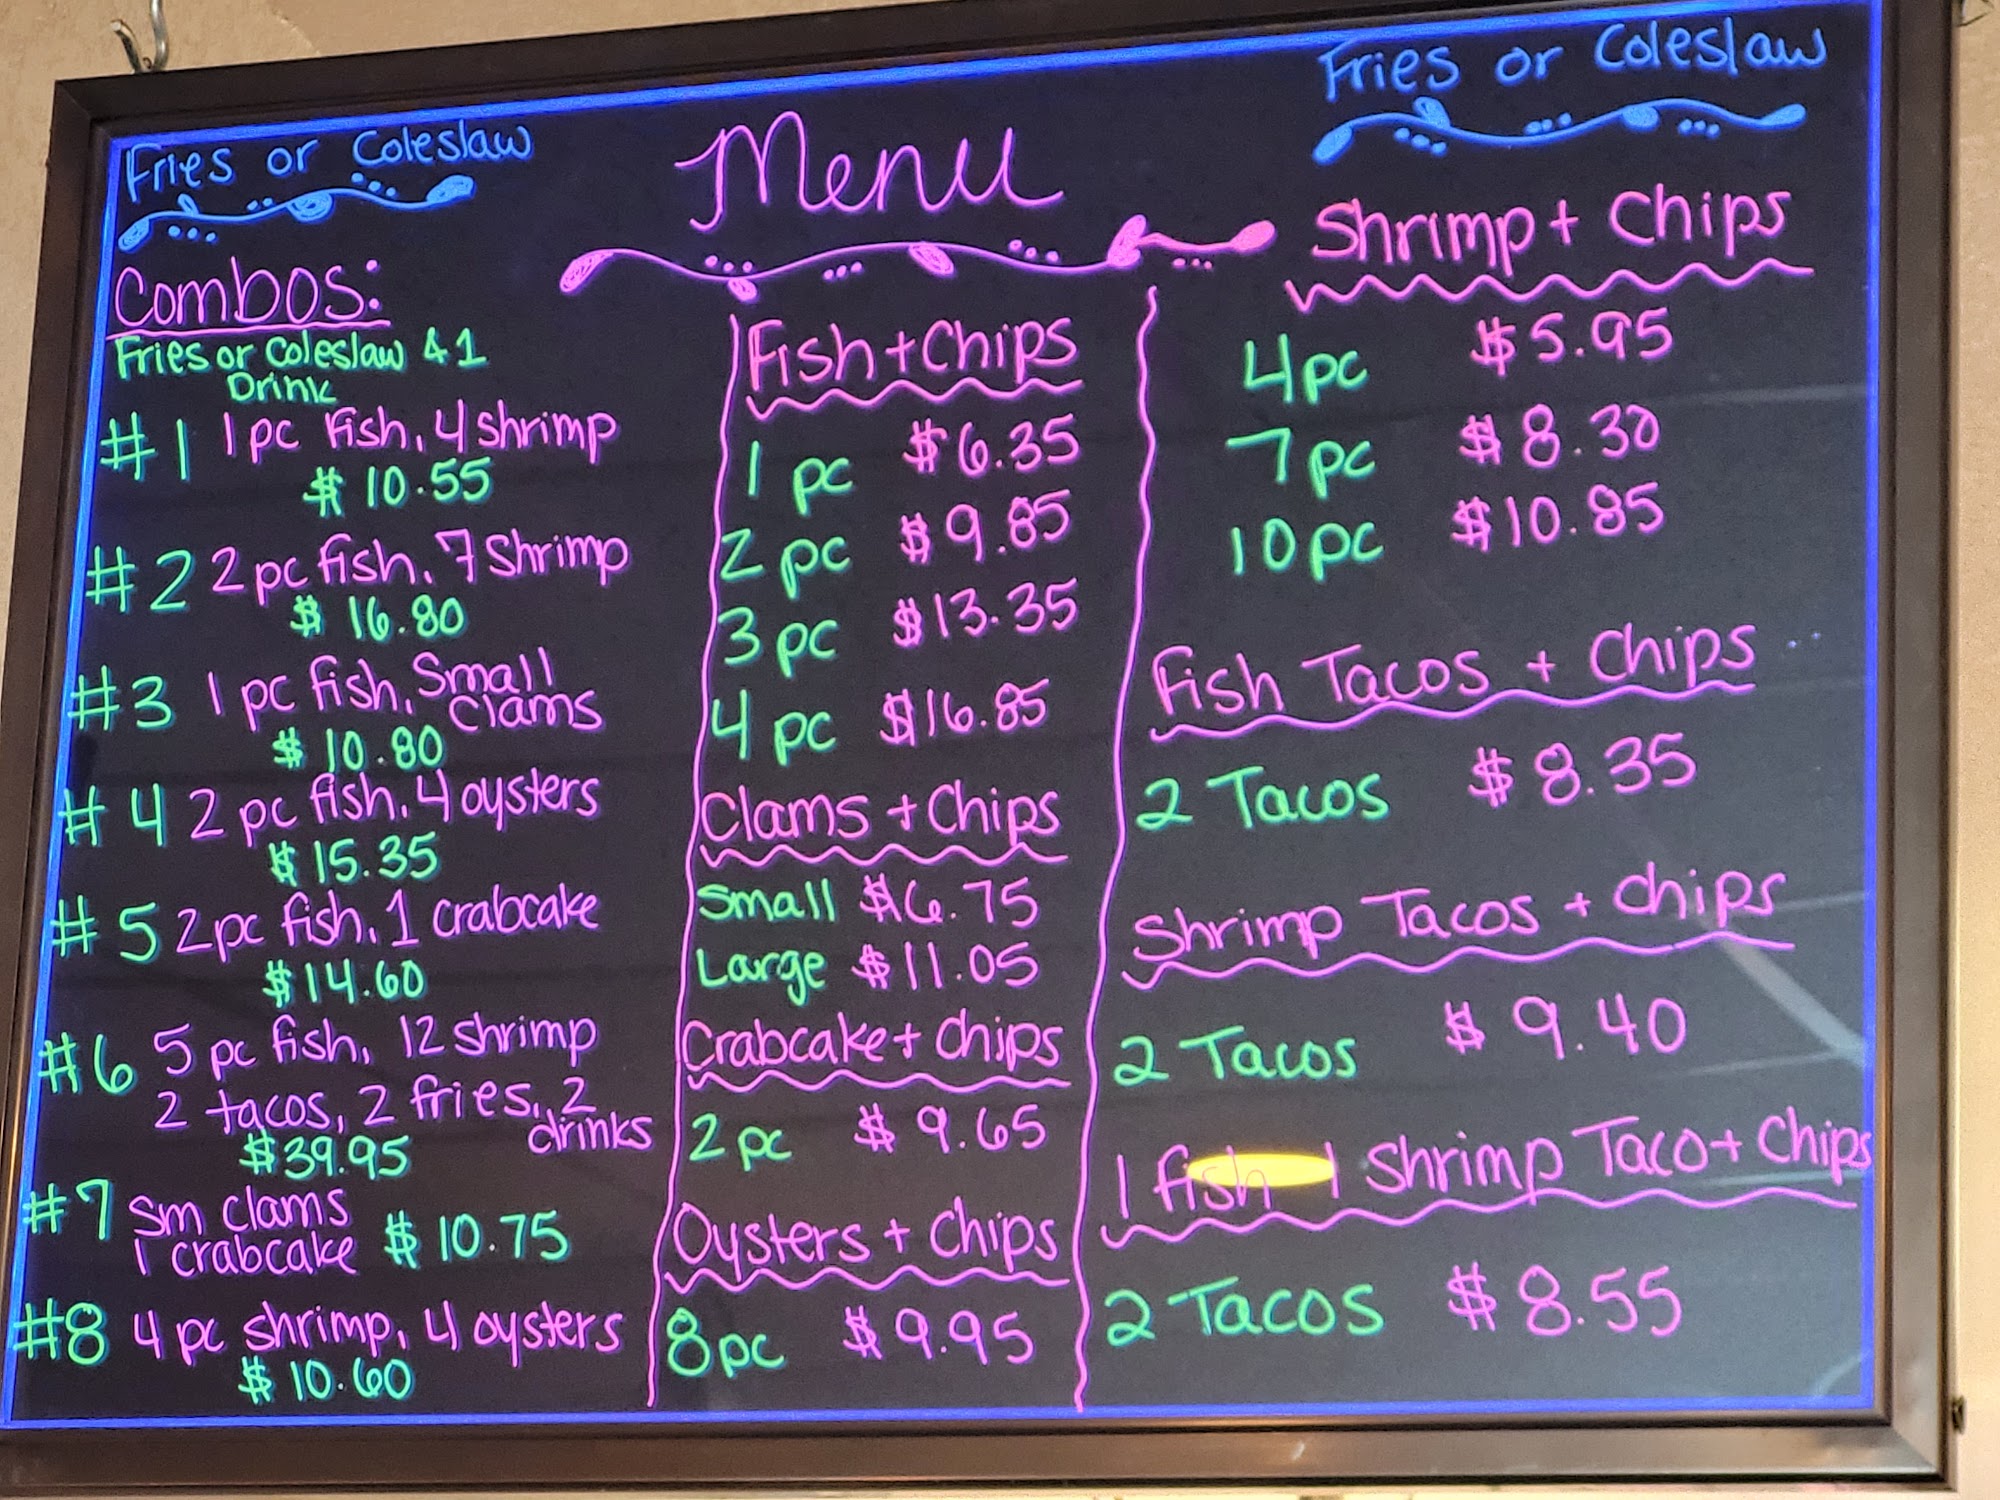 Fries or Coleslaw
Combos:
Fries or Coleslaw & 1
Drink
#1 1 pc Fish, 4 shrimp
$10.55
#2 2 pc fish, 7 Shrimp
$16.80
#3 1 pc fish, Small
Clams
$10.80
#4 2 pc fish, 4 oysters
$15.35
#5 2 pc fish, 1 crabcake
$14.60
#6 5 pc fish, 12 shrimp
2 tacos, 2 fries, 2
drinks
$39.95
#7 Sm Clams
1 crabcake $10.75
#8 4 pc shrimp, 4 oysters
$10.60
Menu
Fish + Chips
1 pc $6.35
2 pc $9.85
3 pc $13.35
4 pc $16.85
Clams + Chips
Small $6.75
Large $11.05
Crabcake + Chips
2 pc $9.65
Oysters + Chips
8 pc $9.95
Fries or Coleslaw
Shrimp + Chips
4 pc $5.95
7 pc $8.30
10 pc $10.85
Fish Tacos + Chips
2 Tacos $8.35
Shrimp Tacos + Chips
2 Tacos $9.40
1 fish 1 Shrimp Taco + Chips
2 Tacos $8.55